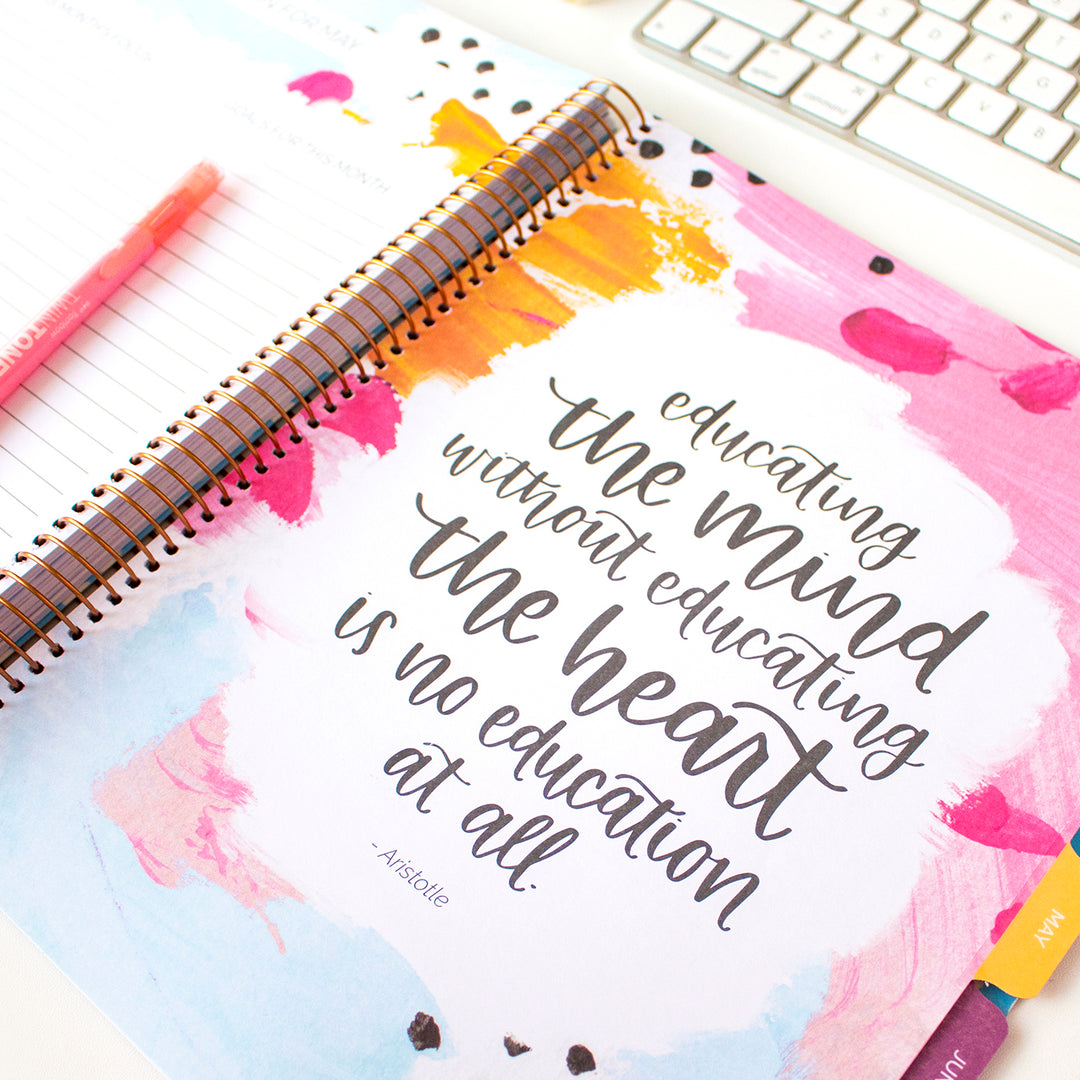 FOR MAY
GOALS FOR THIS MONTH
TWINTONE
educating
the mind
without educating
the heart
is no education
at all.
- Aristotle
MAY
command
option
A
S
D
F
G
Z
X
C
V
B